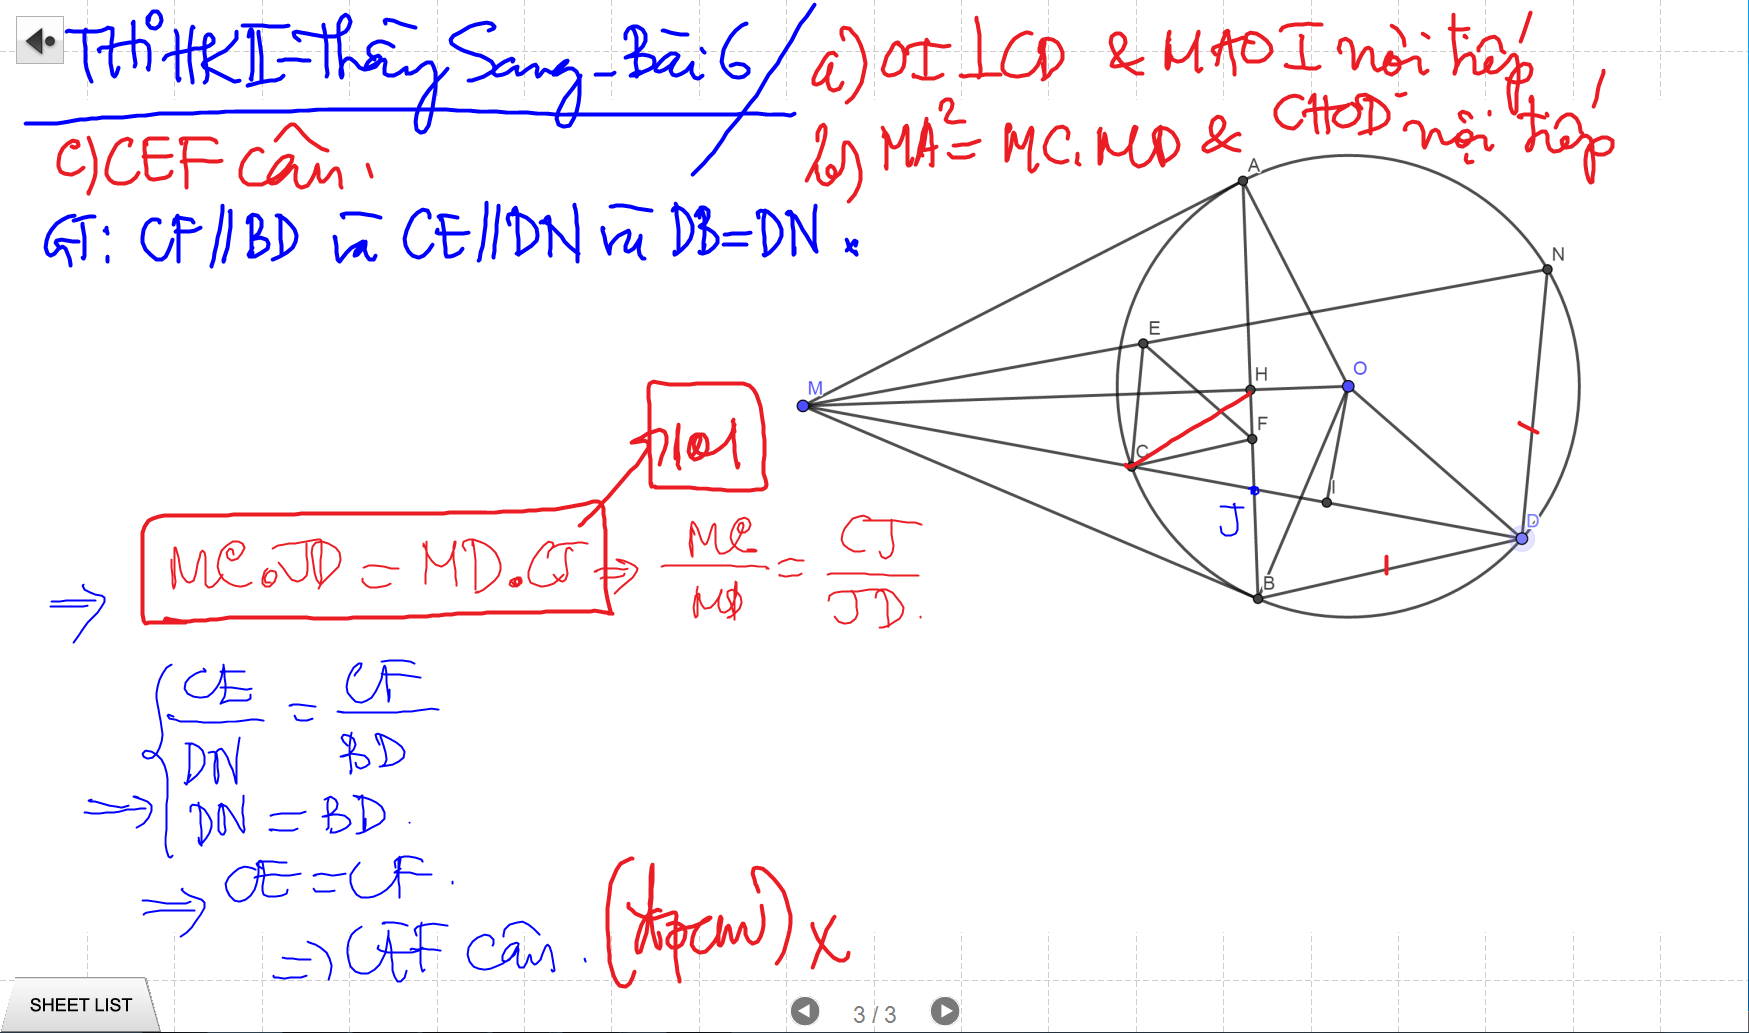 Thi HKII - Thầy Sang - Bài 6
a) OI ⊥ CD & MAOI nội tiếp
b) MA² = MC.MD & CHOD nội tiếp
c) CEF cân.
GT: CF // BD và CE // DN và DB = DN.
A
N
E
M
H
O
F
C
I
J
D
B
⇒ MC.JD = MD.CJ ⇒ MC/MD = CJ/JD.
CE/DN = CF/BD
⇒ DN = BD.
⇒ CE = CF.
⇒ CEF cân. (đpcm) x
SHEET LIST
3 / 3